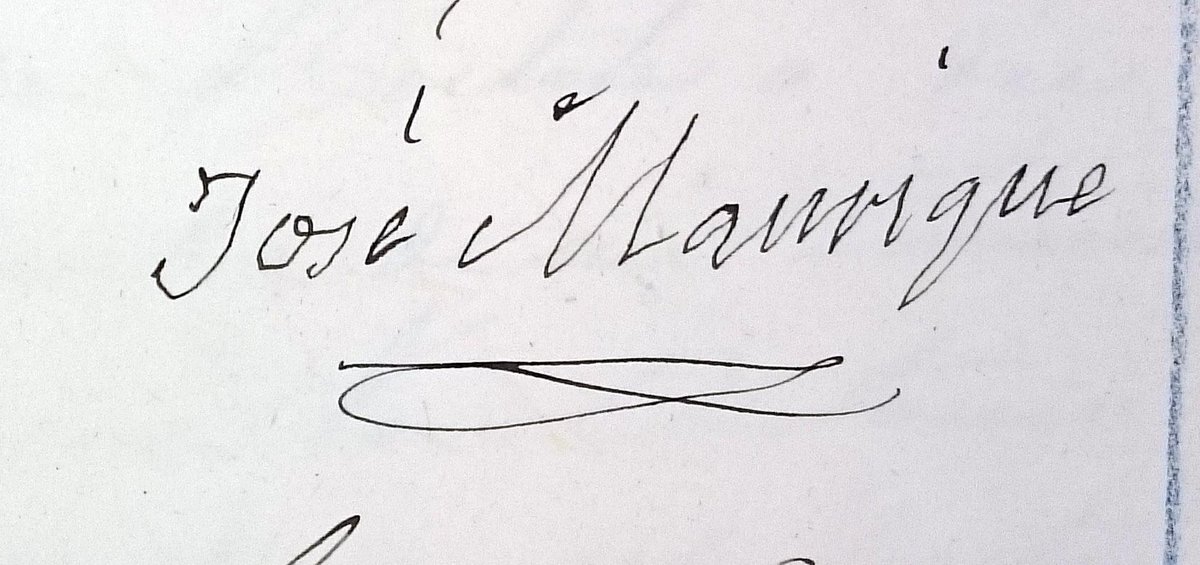 José Manrique